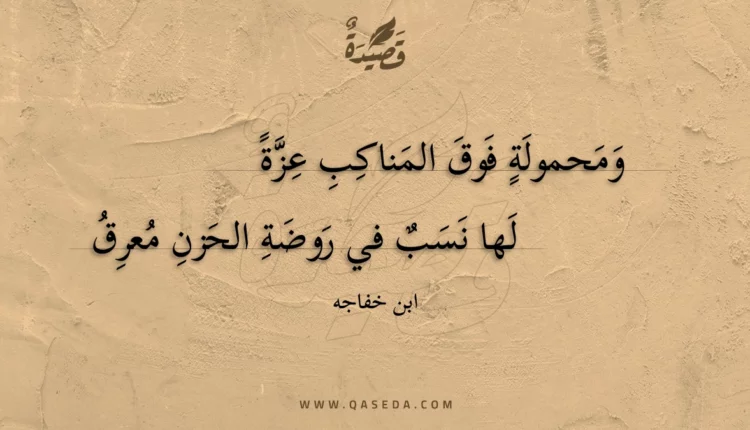 قَصِيدَةٌ
وَمَحمولَةٍ فَوقَ المَناكِبِ عِزَّةً
لَها نَسَبٌ في رَوضَةِ الحَزنِ مُعرِقُ
ابن خفاجه
WWW.QASEDA.COM